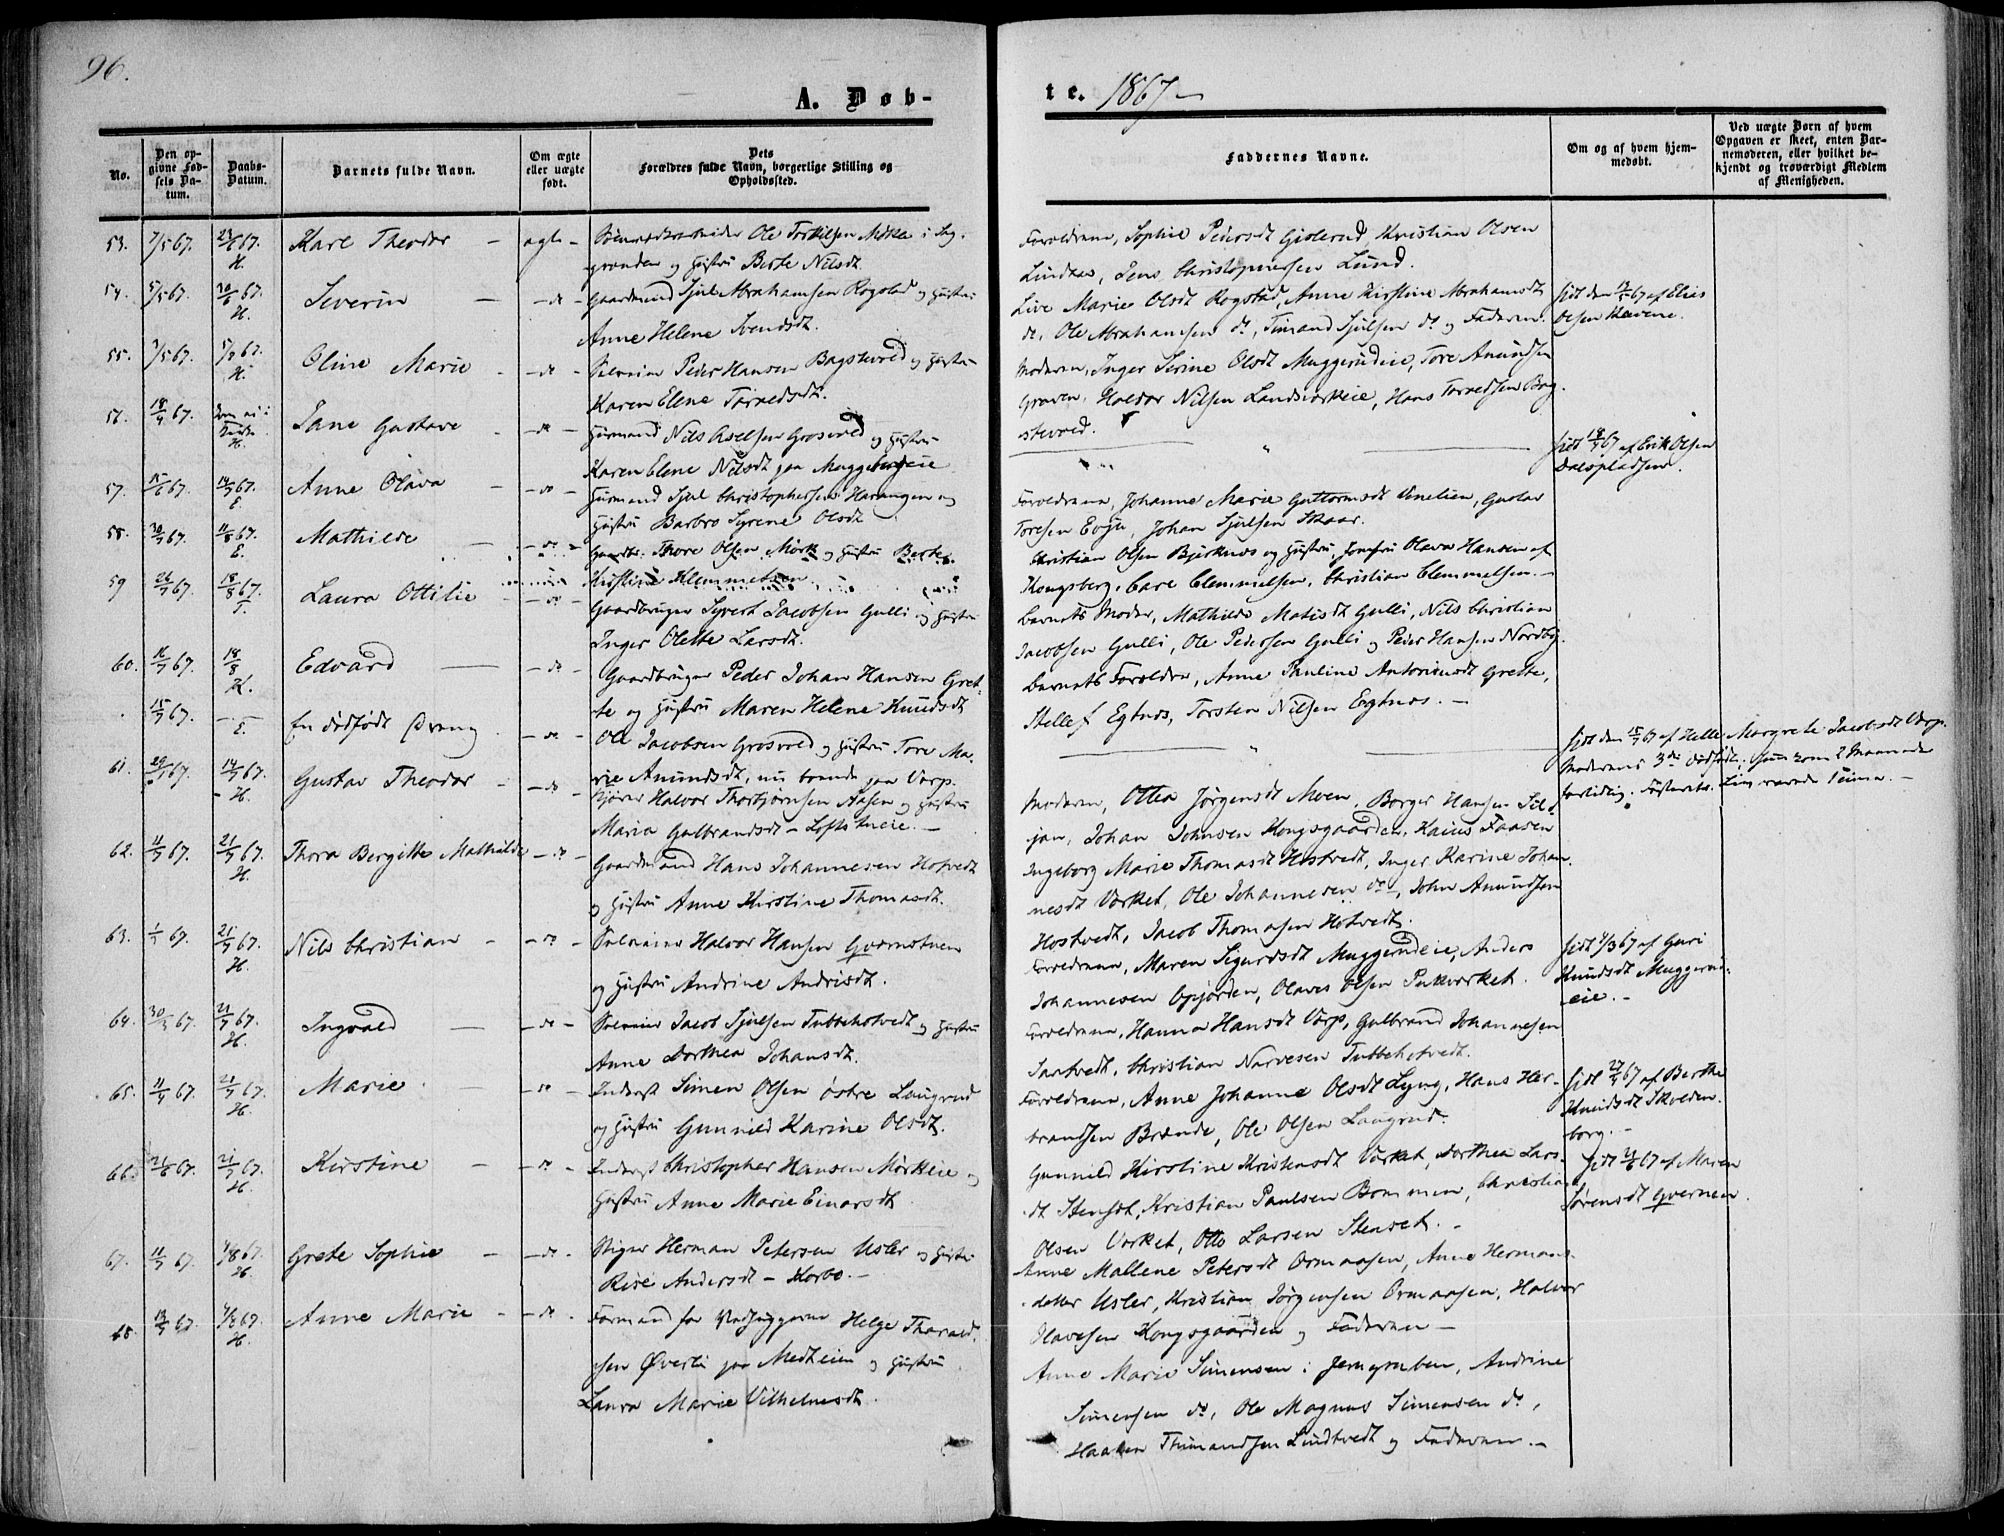 96.
A. Døb-
te. 1867
No.
Den op-
givne Fød-
sels Da-
tum.
Daabs-
Datum.
Barnets fulde Navn.
Om ægte
eller uægte
født.
Dets
Forældres fulde Navn, borgerlige Stilling og
Opholdssted.
Faddernes Navne.
Om og af hvem hjem-
medøbt.
Ved uægte Børn af hvem
Opgaven er skeet, enten Bar-
nemoderen, eller hvilket be-
kjendt og troværdigt Medlem
af Menigheden.
53. 7/5 67. 23/6 67. H. Karl Theodor - ægte - Ole Torkilsen
og Hustru Berte Nilsdt.
Forældrene, Sophie Pedersdt Gislerud, Kristian Olsen
Lindaas, Jens Christophersen Lund.
54. 5/5 67. 30/6 67. H. Severin - do - Gaardmand Sjul Abrahamsen Rogstad og Hustru
Anne Helene Svendsdt.
Live Marie Olsdt Rogstad, Anne Kirstine Abrahamsdt
do, Ole Abrahamsen do, Simand Sjulsen do og Faderen.
hjdt den 12/5 67 af Elias
Olsen
55. 7/5 67. 5/7 67. H. Oline Marie - do - Peder Hansen Bagstevold og Hustru
Karen Elene Torvedsdt.
Moderen, Inger Sirine Olsdt Muggerudeie, Tore Amundsen
Graven, Haldor Nilsen Landsværkeie, Hans Torvedsen Bag-
stevold.
56. 18/4 67. H. Jane Gustave - do - Huusmand Nils Axelsen Grosvold og Hustru
Karen Elene Nilsdt paa Muggerudeie
hjdt 18/4 67 af Erik Olsen
Dalspladsen.
57. 15/6 67. 14/7 67. E. Anne Olava - do - Huusmand Sjul Christophersen Harangen og
Hustru Barbro Syrene Olsdt
Forældrene, Johanne Marie Guttormsdt Venelien, Gustav
Toresen Evju, Johan Sjulsen Skaar.
58. 30/7 67. 11/8 67. E. Mathilde - do - Gaardbr. Thore Olsen Mørk og Hustru Berte
Kristine Klemmetsen
Christian Olsen Bjerknæs og Hustru, Jomfru Olava Hansen af
Kongsberg, Carl Clemmetsen, Christian Clemmetsen.
59 26/7 67. 18/8 67. Laura Ottilie - do - Gaardbruger Syvert Jacobsen Gulli og Hustru
Inger Olette Larsdt.
Barnets Moder, Mathilde Matisdt Gulli, Nils Christian
Jacobsen Gulli, Ole Pedersen Gulli og Peder Hansen Nordby.
60. 16/7 67. 18/8 H. Edvard - do - Gaardbruger Peder Johan Hansen Gret-
te og Hustru Maren Helene Knudsdt
Barnets Forældre, Anne Pauline Antoniusdt Grette,
Stellef Egtnes, Torsten Nilsen Egtnes.
15/7 67. E. En dødfødt Dreng - do - Ole Jacobsen Grosvold og Hustru Tore Ma-
rie Amundsdt, nu boende paa Værp.
hjdt den 15/7 67 af Helle Margrete Jacobsdt Værp.
Moderens 3de dødfødte, kom 2 Maaneder
fortidlig.
61. 29/ 67. 14/7 67. H. Gustav Theodor - do - Halvor Thorbjørnsen Aasen og Hustru
Maria Gulbrandsdt - Loftstueie.
Moderen, Ottea Jørgensdt Moen, Borger Hansen Sil-
jan, Johan Johnsen Kongsgaarden, Kaius Faasen
62. 11/ 67. 21/7 67. H. Thora Bergitte Mathilde - do - Gaardmand Hans Johannesen Hotvedt
og Hustru Anne Kirstine Thomasdt.
Ingeborg Marie Thomasdt Hostvedt, Inger Karine Johan-
nesdt Værket, Ole Johannesen do, John Amundsen
Hostvedt, Jacob Thomasen Hotvedt.
63. 67. 21/7 67. H. Nils Christian - do - Halvor Hansen Qvernstuen
og Hustru Andrine Andrisdt.
Forældrene, Maren Sigurdsdt Muggerudeie, Anders
Johannesen Opjorden, Olaves Olsen Pukværket.
hjdt 4/3 67 af Guri
Knudsdt Muggerud-
eie.
64. 30/3 67. 21/7 67. H. Ingvald - do - Jacob Sjulsen Tubbehotvedt og Hustru
Anne Dorthea Johansdt.
Forældrene, Hanna Hansdt Værp, Gulbrand Johannesen
Saatvedt, Christian Narvesen Tubbehotvedt.
65. 11/4 67. 21/7 67. H. Marie - do - Inderst Simen Olsen østre Laugrud
og Hustru Gunnild Karine Olsdt.
Forældrene, Anne Johanne Olsdt Lyng, Hans Her-
brandsen Brænde, Ole Olsen Laugrud.
hjdt 27/4 67 af Berthe
Knudsdt Skolden-
borg.
66. 21/6 67. 21/7 67. H. Kirstine - do - Inderst Christopher Hansen Mørkeie og
Hustru Anne Marie Einarsdt
Gunnild Kirstine Kristensdt Værket, Dorthea Lars-
dt Stenset, Kristian Paulsen Bommen, Christian
Olsen Værket, Otto Larsen Stenset.
hjdt 21/6 67 af Maren
Sørensdt Qvernen.
67. 11/7 67. 4/8 67. H. Grete Sophie - do - Stiger Herman Petersen Usler og Hustru
Risé Andersdt - Korbo.
Anne Mallene Petersdt Ormaasen, Anne Hermans-
datter Usler, Kristian Jørgensen Ormaasen, Halvor
Olavesen Kongsgaarden og Faderen
68. 13/ 67 4/8 67. H. Anne Marie - do - Formand for Vedhuggerne Helge Tharald-
sen Øverli paa Medheien og Hustru
Laura Marie Vilhelmsdt.
Anne Marie Simensen i Jerngruben, Andrine
Simensen do, Ole Magnus Simensen do,
Haaken Thimandsen Lindtvedt og Faderen.